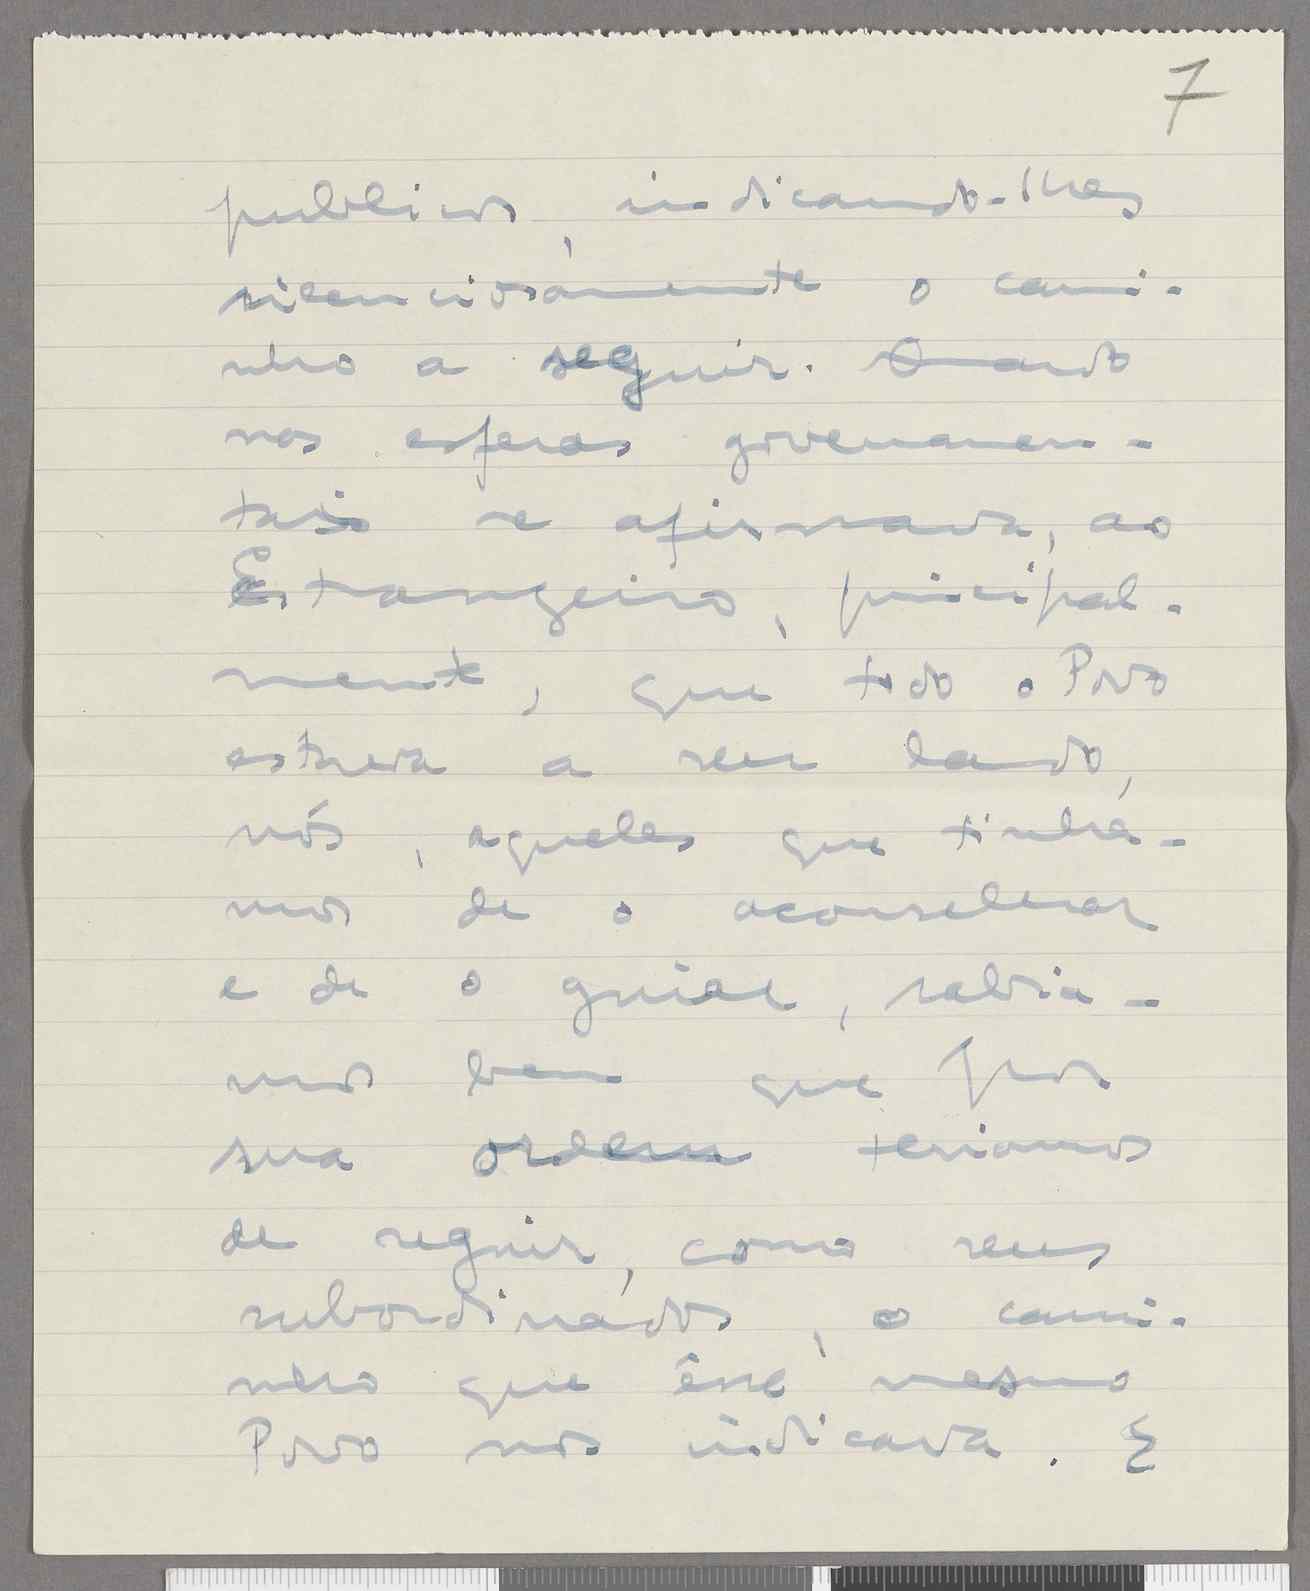 7
publicos, indicando-lhes
silenciosamente o cami-
nho a seguir. Quando
nas esferas governamen-
tais se afirmava, ao
Estrangeiro, principal-
mente, que todo o Povo
estava a seu lado,
nós, aqueles que tinha-
mos de o aconselhar
e de o guiar, sabia-
mos bem que por
sua ordem teriamos
de seguir, como seus
subordinados, o cami-
nho que êsse mesmo
Povo nos indicava. E